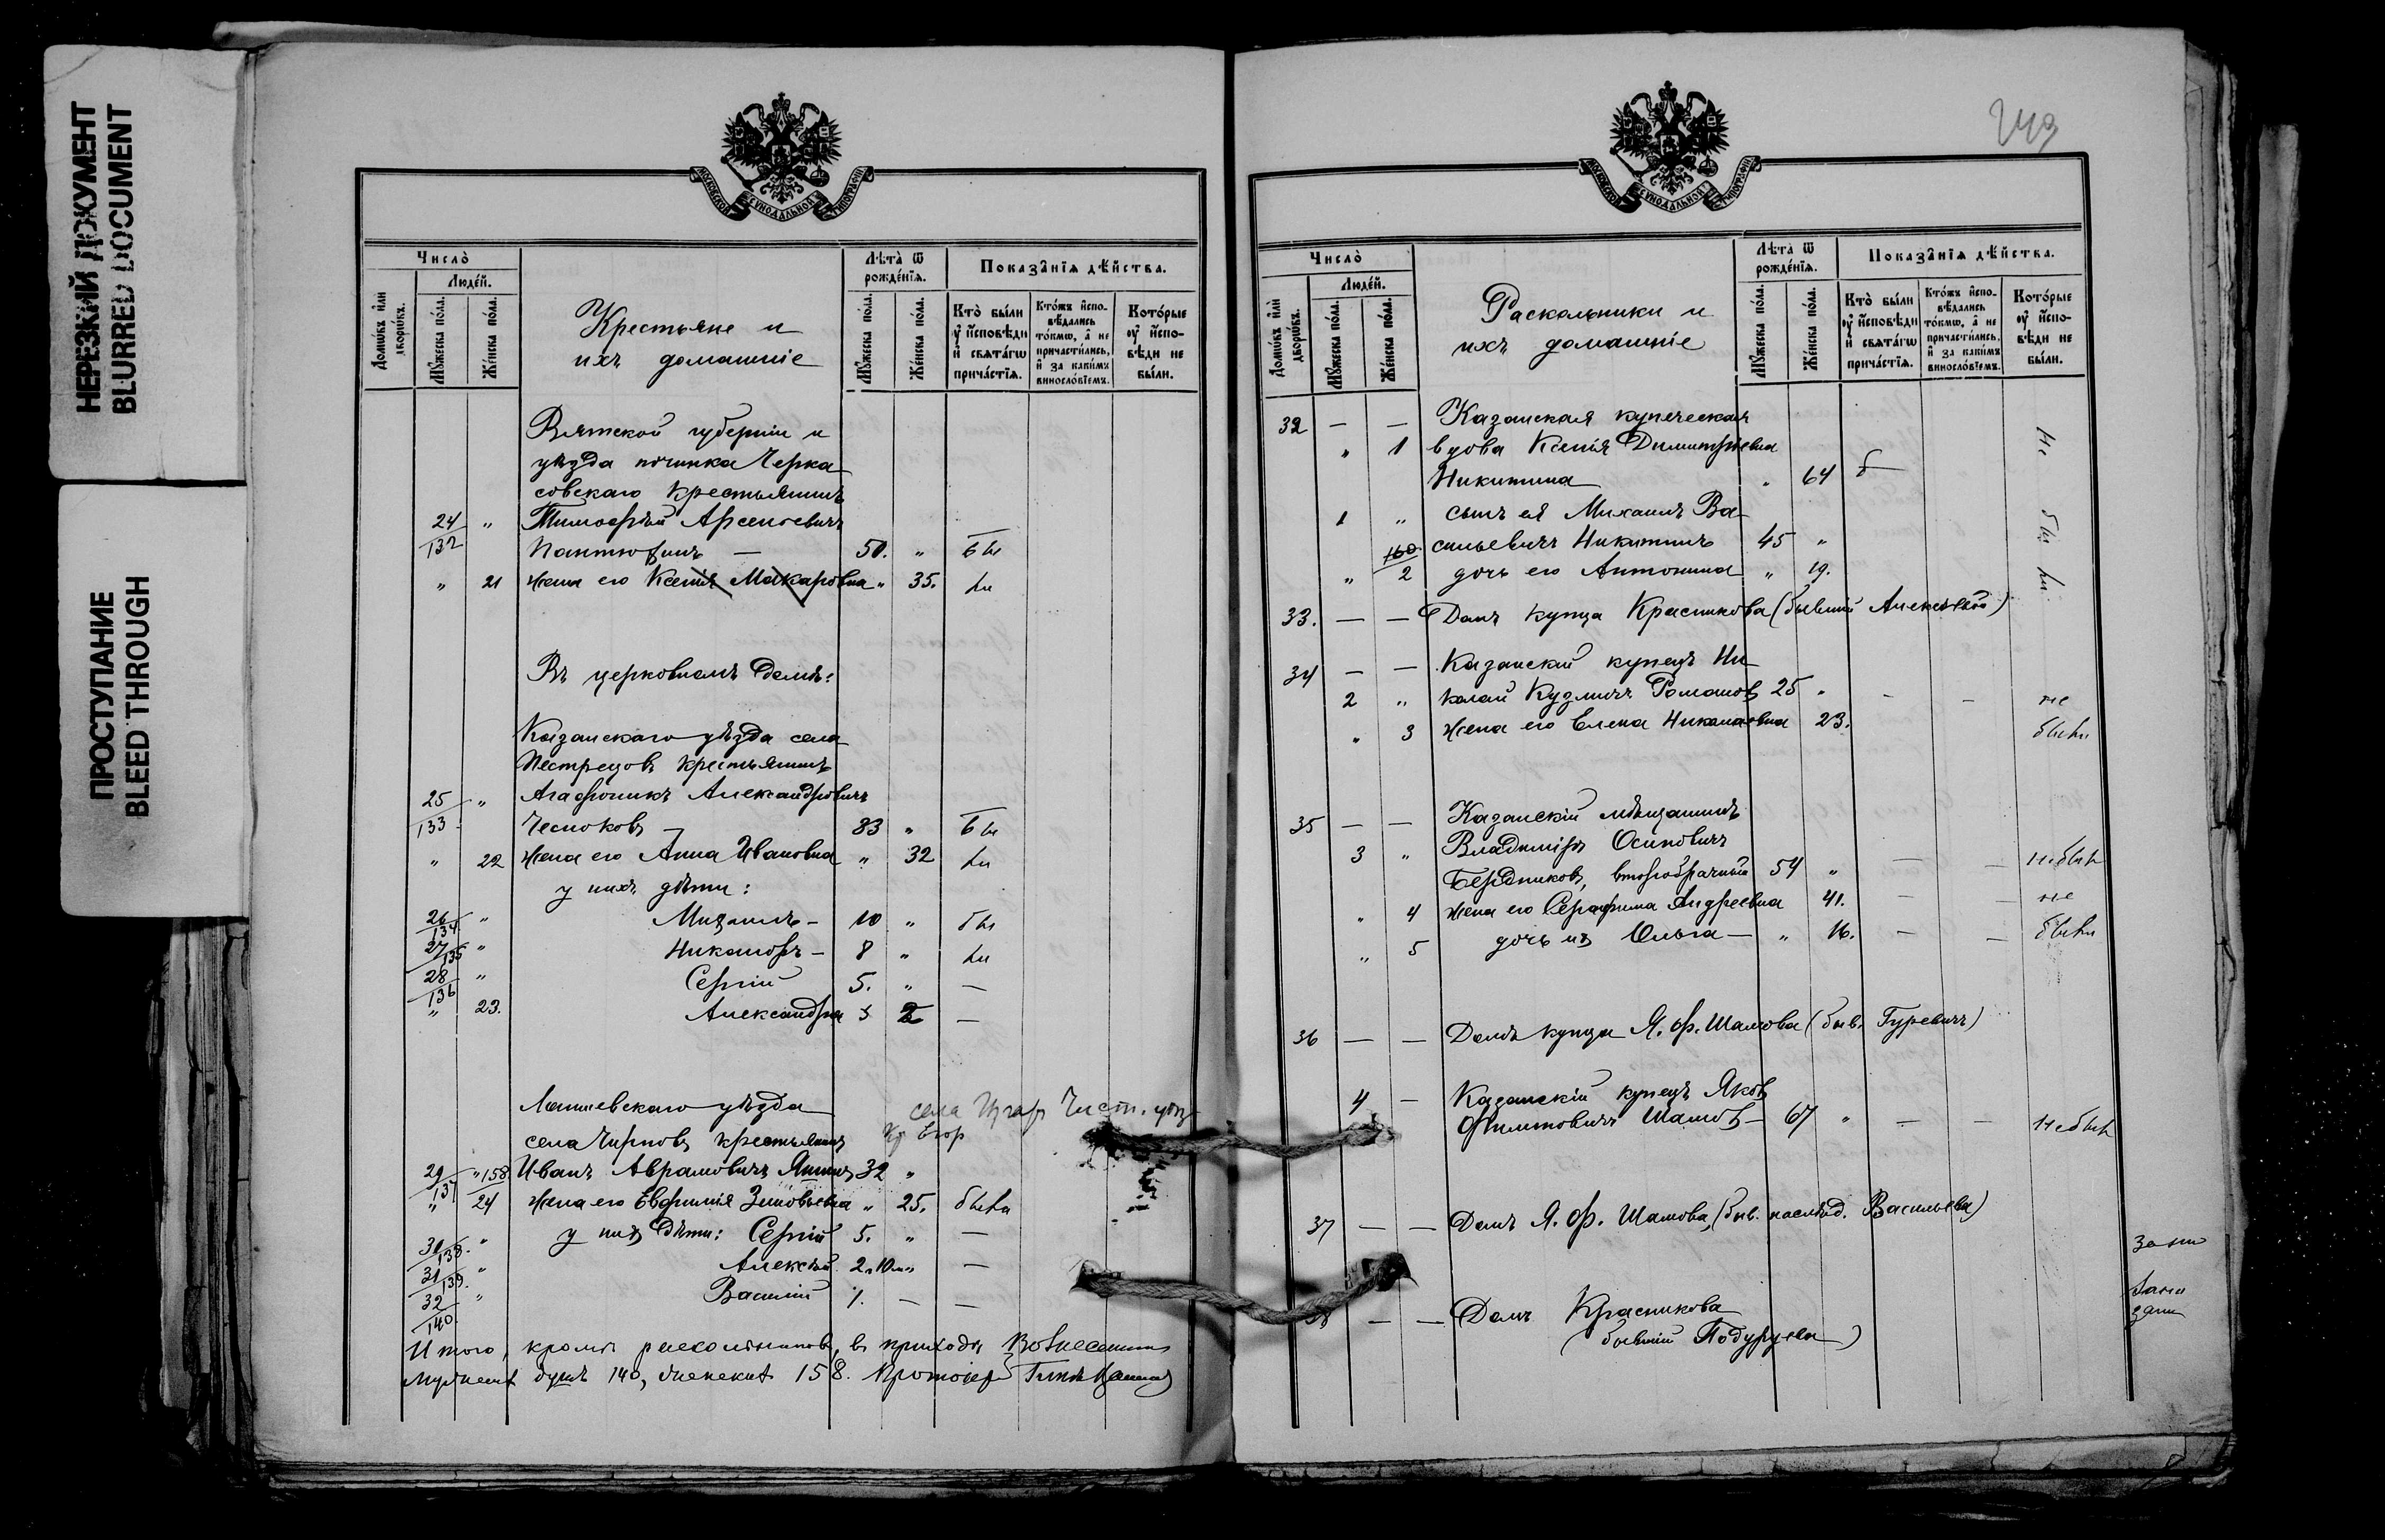 НЕРЕЗКИЙ ДОКУМЕНТ
BLURRED DOCUMENT
ПРОСТУПАНИЕ
BLEED THROUGH
МОСКОВСКОЙ СУНОДАЛЬНОЙ ТИПОГРАФІИ
Число̀
Людéй.
Домѡ́въ и҆лѝ дворѡ́въ.
Мꙋ́жеска по́ла.
Же́нска по́ла.
Крестьяне и
ихъ домашніе
Лѣ́та ѿ рожде́нїѧ.
Мꙋ́жеска по́ла.
Же́нска по́ла.
Показа̑нїѧ дѣ́йства.
Кто̀ бы́ли ᲂу҆ и҆сповѣ́ди и҆ свѧта́гѡ прича́стїѧ.
Кто́жъ и҆сповѣ́дались то́кмѡ, а҆ не причасти́лись, и҆ за каки́мъ винослѡ́вїемъ.
Кото́рые ᲂу҆ и҆сповѣ́ди не бы́ли.
Вятской губерніи и
уѣзда починка Черка
совскаго крестьянинъ
24/132 " Тимофѣй Арсеніевичъ
Пантюхинъ — 50. " бы
" 21 жена его Ксенія Макаровна " 35. ли
Въ церковномъ домѣ:
Казанскаго уѣзда села
Пестрецовъ крестьянинъ
25/133 " Агафоникъ Александровичъ
Чесноковъ — 33 " бы
" 22 жена его Анна Ивановна " 32 ли
у нихъ дѣти:
26/134 " Михаилъ — 10 " бы
27/135 " Никаноръ — 8 " ли
28/136 " Сергій 5. " —
" 23. Александра 3 2 —
Лаишевскаго уѣзда
села Чирповъ крестьянинъ
села Чист. уѣз
Егор
29/137 " 158 Иванъ Аврамовичъ 32 "
" 24 жена его Евфимія Зиновьевна " 25. были
30/138. " у нихъ дѣти: Сергій 5. " —
31/139. " Алексѣй 2 10 м. —
32/140. " Василій 1. — —
Итого, кромѣ раскольниковъ, въ приходѣ Вознесенскомъ
мужеска душъ 140, женска 158. Протоіерей
243
МОСКОВСКОЙ СУНОДАЛЬНОЙ ТИПОГРАФІИ
Число̀
Людéй.
Домѡ́въ и҆лѝ дворѡ́въ.
Мꙋ́жеска по́ла.
Же́нска по́ла.
Раскольники и
ихъ домашніе
Лѣ́та ѿ рожде́нїѧ.
Мꙋ́жеска по́ла.
Же́нска по́ла.
Показа̑нїѧ дѣ́йства.
Кто̀ бы́ли ᲂу҆ и҆сповѣ́ди и҆ свѧта́гѡ прича́стїѧ.
Кто́жъ и҆сповѣ́дались то́кмѡ, а҆ не причасти́лись, и҆ за каки́мъ винослѡ́вїемъ.
Кото́рые ᲂу҆ и҆сповѣ́ди не бы́ли.
32 — — Казанская купеческая
" 1 вдова Ксенія Димитріевна Не
Никитина " 64
1 " сынъ ея Михаилъ Ва бы
160 сильевичъ Никитинъ 45 "
" 2 дочь его Антонина " 19. ли
33. — — Домъ купца Красникова (бывшій Алексѣевой)
34 — — Казанскій купецъ Ни
2 " колай Кузмичъ Романовъ 25 " — — не
" 3 жена его Елена Николаевна 23. были
35 — — Казанскій мѣщанинъ
3 " Владиміръ Осиповичъ
Бердниковъ, второбрачный 54 " — — не был
" 4 жена его Серафима Андреевна 41. — — не
" 5 дочь ихъ Ольга — " 16. — — были
36 — — Домъ купца Я. Ф. Шамова (быв. Гуревичъ)
4 — Казанскій купецъ Яковъ
Филиповичъ Шамовъ — 67 " — — не был
37 — — Домъ Я. Ф. Шамова (быв. наслѣд. Васильева)
38 — — Домъ Красникова
(бывшій Подуруева)